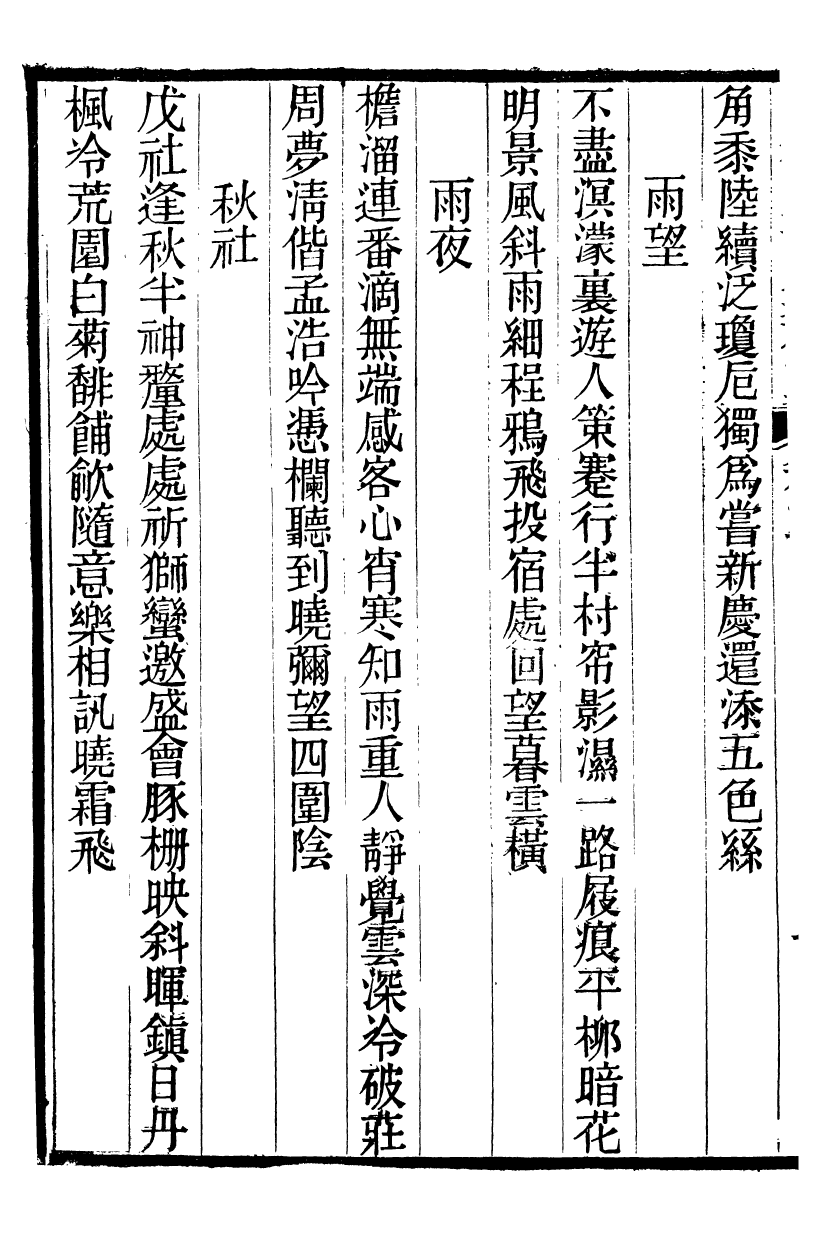 角黍陸續泛瓊卮獨爲嘗新慶還添五色絲
雨望
不盡溟濛裏遊人策蹇行半村帘影濕一路屐痕平柳暗花
明景風斜雨細程鴉飛投宿處回望暮雲橫
雨夜
檐溜連番滴無端感客心宵寒知雨重人靜覺雲深冷破莊
周夢淸偕孟浩吟慿欄聽到曉彌望四圍陰
秋社
戊社逢秋半神釐處處祈獅蠻邀盛會豚柵映斜暉鎭日丹
楓冷荒園白菊馡餔飮隨意樂相訊曉霜飛